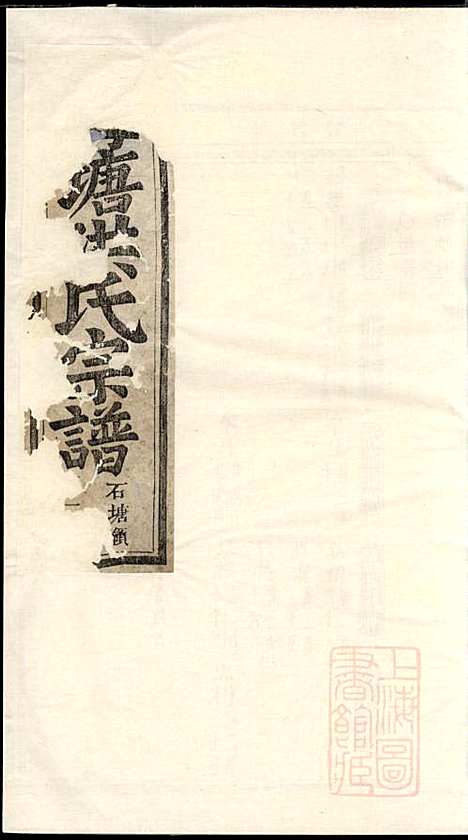 塘洪氏宗譜
石塘鎮
一
上海圖書館藏